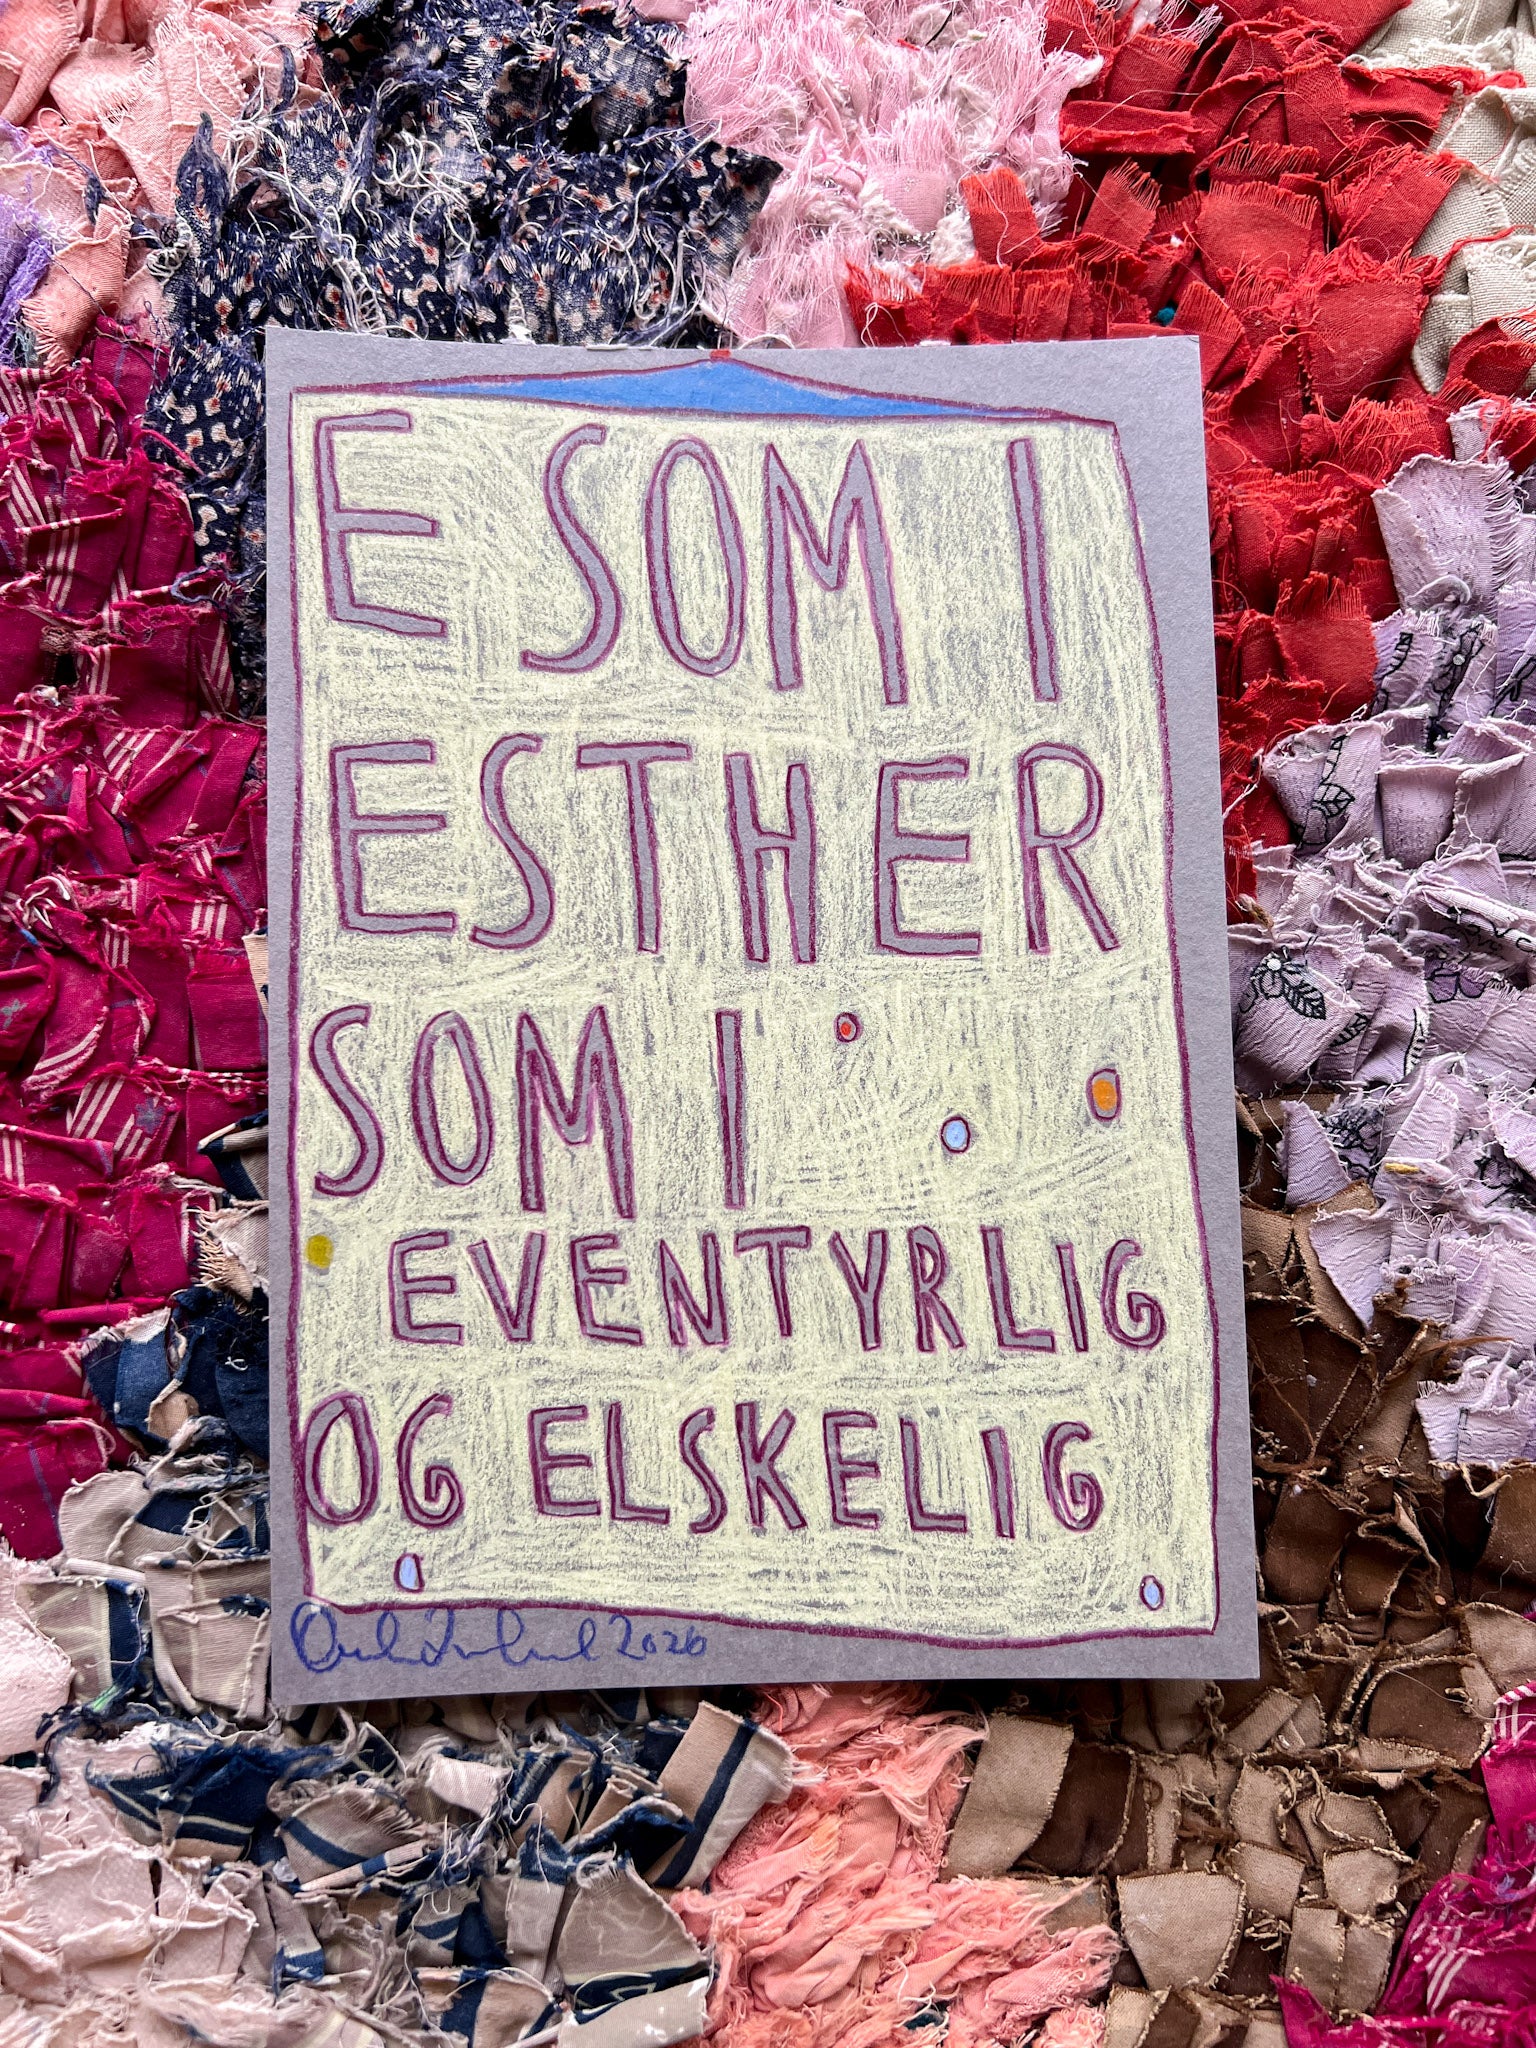 E SOM I
ESTHER
SOM I
EVENTYRLIG
OG ELSKELIG
2026